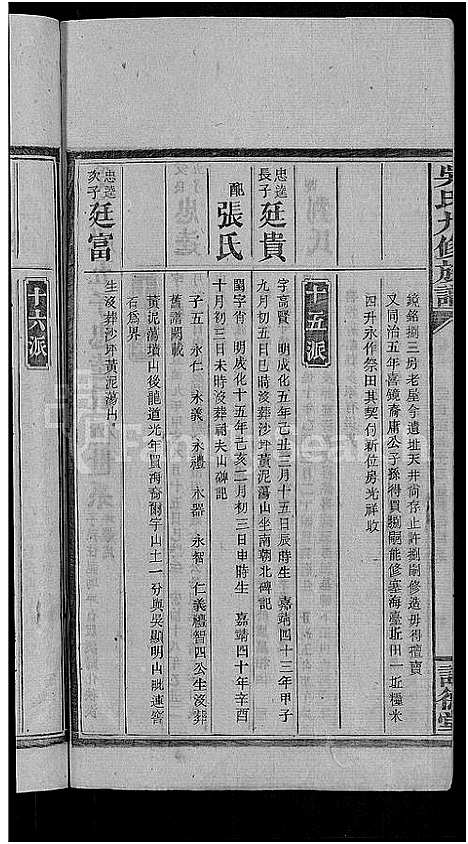 吳氏九修族譜
鏡銘捌三房老屋今遺址天井尚存止許捌嗣修造毋得擅賣
又同治五年喜鏡裔庸公子孫得買捌嗣能修塞海臺坵田一坵糧米
四升永作祭田其契付新位房光祥收
十五派
忠達長子廷貴
字高賢 明成化五年己丑三月十五日辰時生 嘉靖四十三年甲子
九月初五日巳時沒葬沙坪黃泥蕩山坐南朝北碑記
配張氏
閨字肖 明成化十五年己亥二月初三日申時生 嘉靖四十年辛酉
十月初三日未時沒葬祠夫山碑記
子五 永仁 永義 永禮 永器 永智 仁義禮智四公生沒葬
舊譜闕載
黃泥蕩墳山後龍道光年置海裔爾字山土一分與吳顯明山毗連窖
石為界
忠達次子廷富
生沒葬沙坪黃泥蕩山
十六派